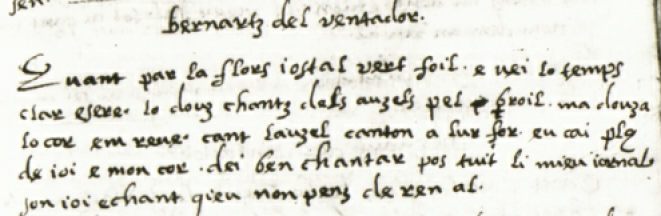 bernartz del ventador.
Quant par la flors iostal vert foil. e vei lo temps
clar esere. lo douz chantz dels auzels pel broil. ma douza
lo cor em reve. cant lauzel canton a lur for. eu cai plq
de ioi e mon cor. dei ben chantar pos tuit li mieu iornal
son ioi echant qieu non penz de ren al.